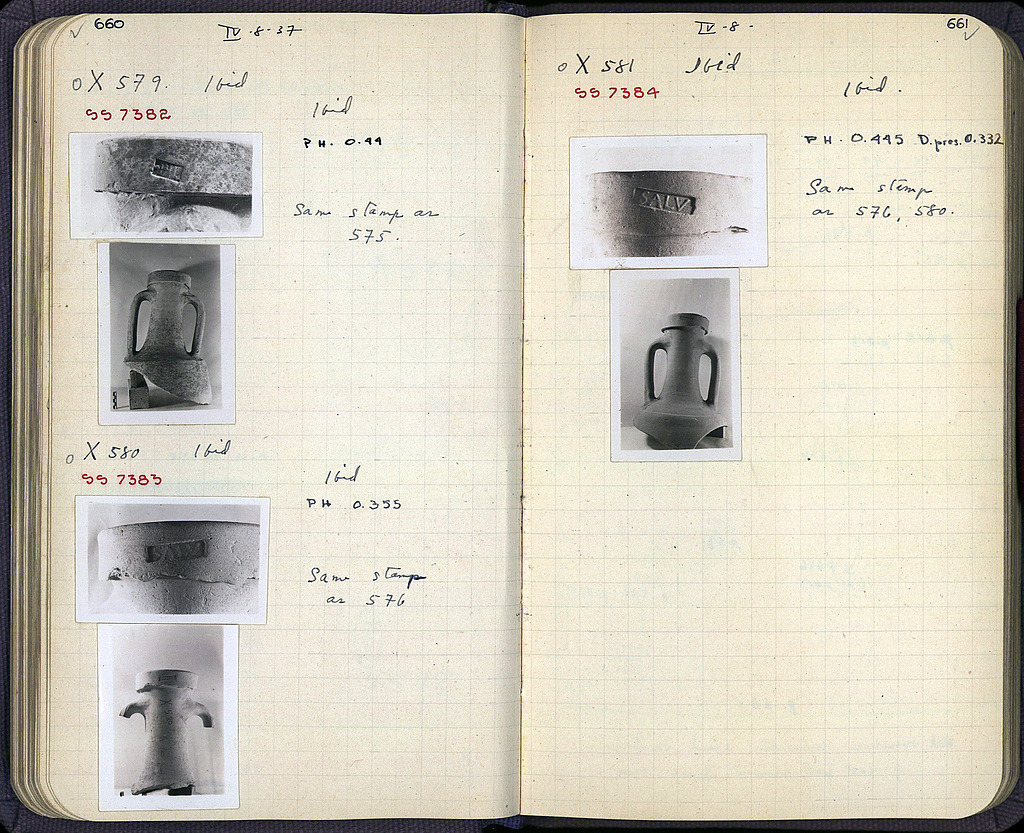 660
IV-8-37
X 579. Ibid
SS 7382
Ibid
PH. 0.44
Same stamp as
575.
X 580 Ibid
SS 7383
Ibid
PH 0.355
SALV
Same stamp
as 576
661
IV-8-
X 581 Ibid
SS 7384
Ibid.
PH. 0.445 D.pres. 0.332
SALV
Same stamp
as 576, 580.